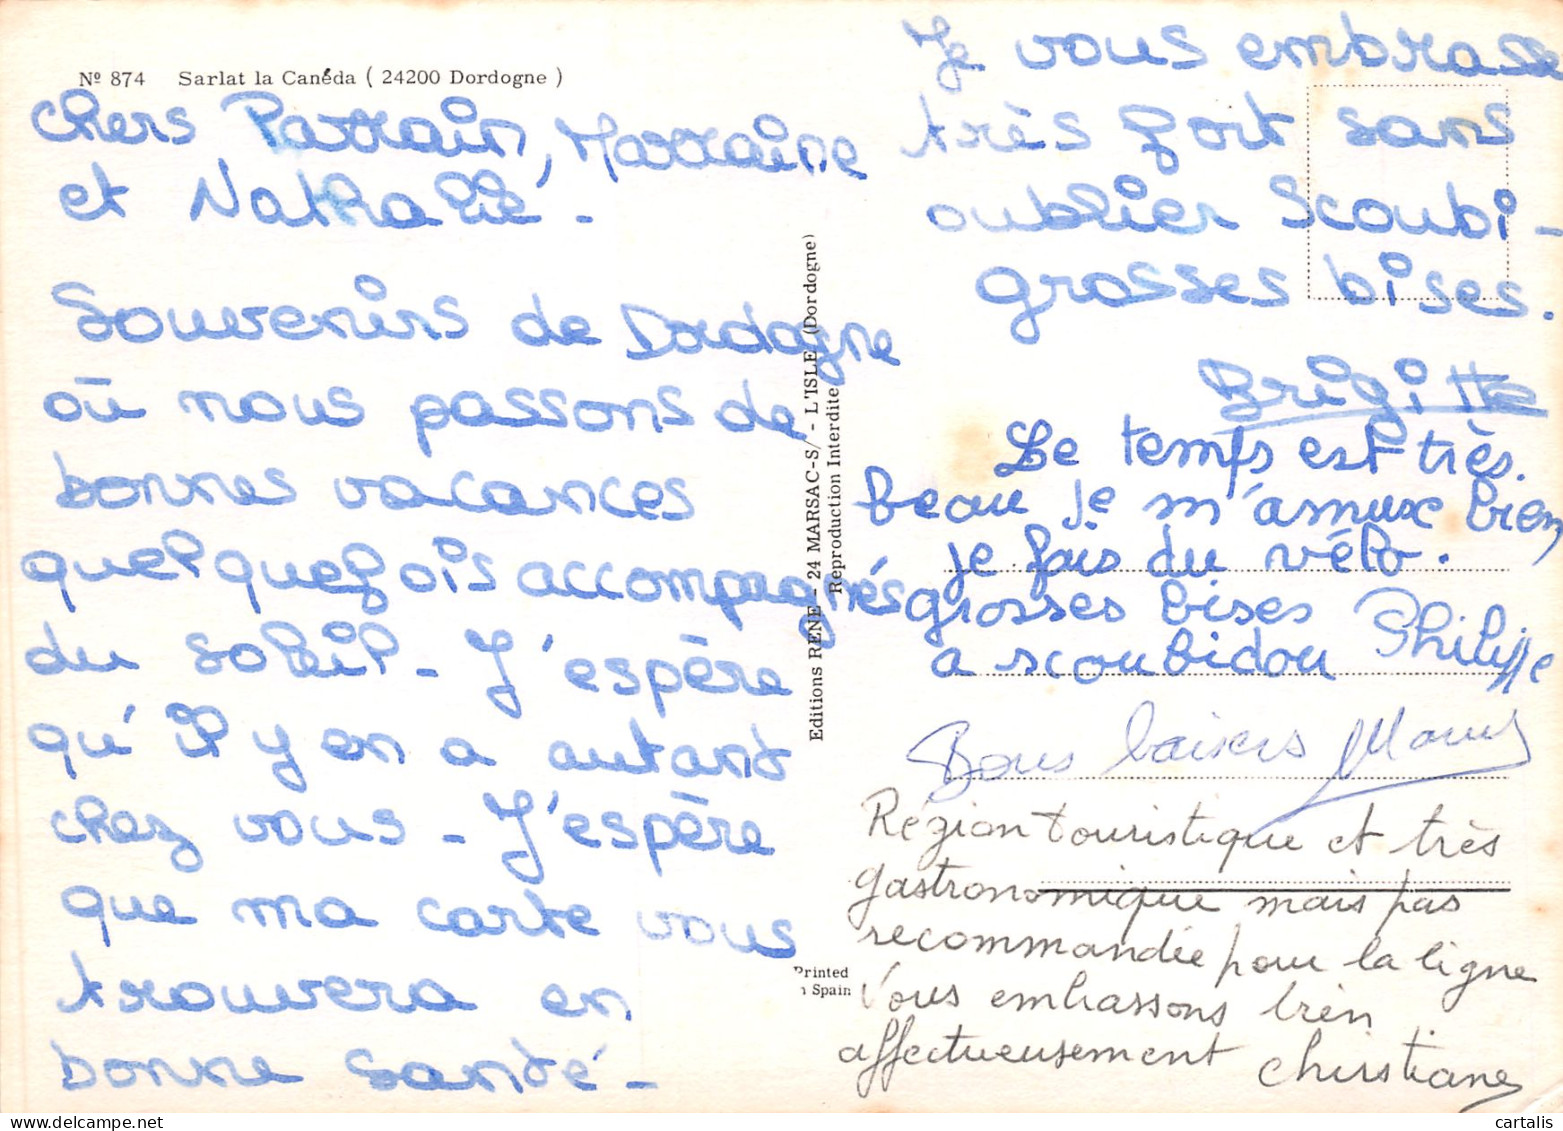 Nº 874 Sarlat la Canéda ( 24200 Dordogne )
chers Parrain, Marraine
et Nathalie -
Souvenirs de Dordogne
où nous passons de
bonnes vacances
quelquefois accompagnés
du soleil - J'espère
qu'il y en a autant
chez vous - J'espère
que ma carte vous
trouvera en
bonne santé -
Editions RENE - 24 MARSAC-S/ - L'ISLE (Dordogne)
Reproduction Interdite
Printed
n Spain
Je vous embrasse
très fort sans
oublier Scoubi -
grosses bises.
Brigitte
Le temps est très.
beau je m'amuse bien,
je fais du vélo.
grosses bises
a scoubidou Philippe
Bons baisers
Région touristique et très
gastronomique mais pas
recommandée pour la ligne
Vous embrassons bien
affectueusement
Christiane
cartalis